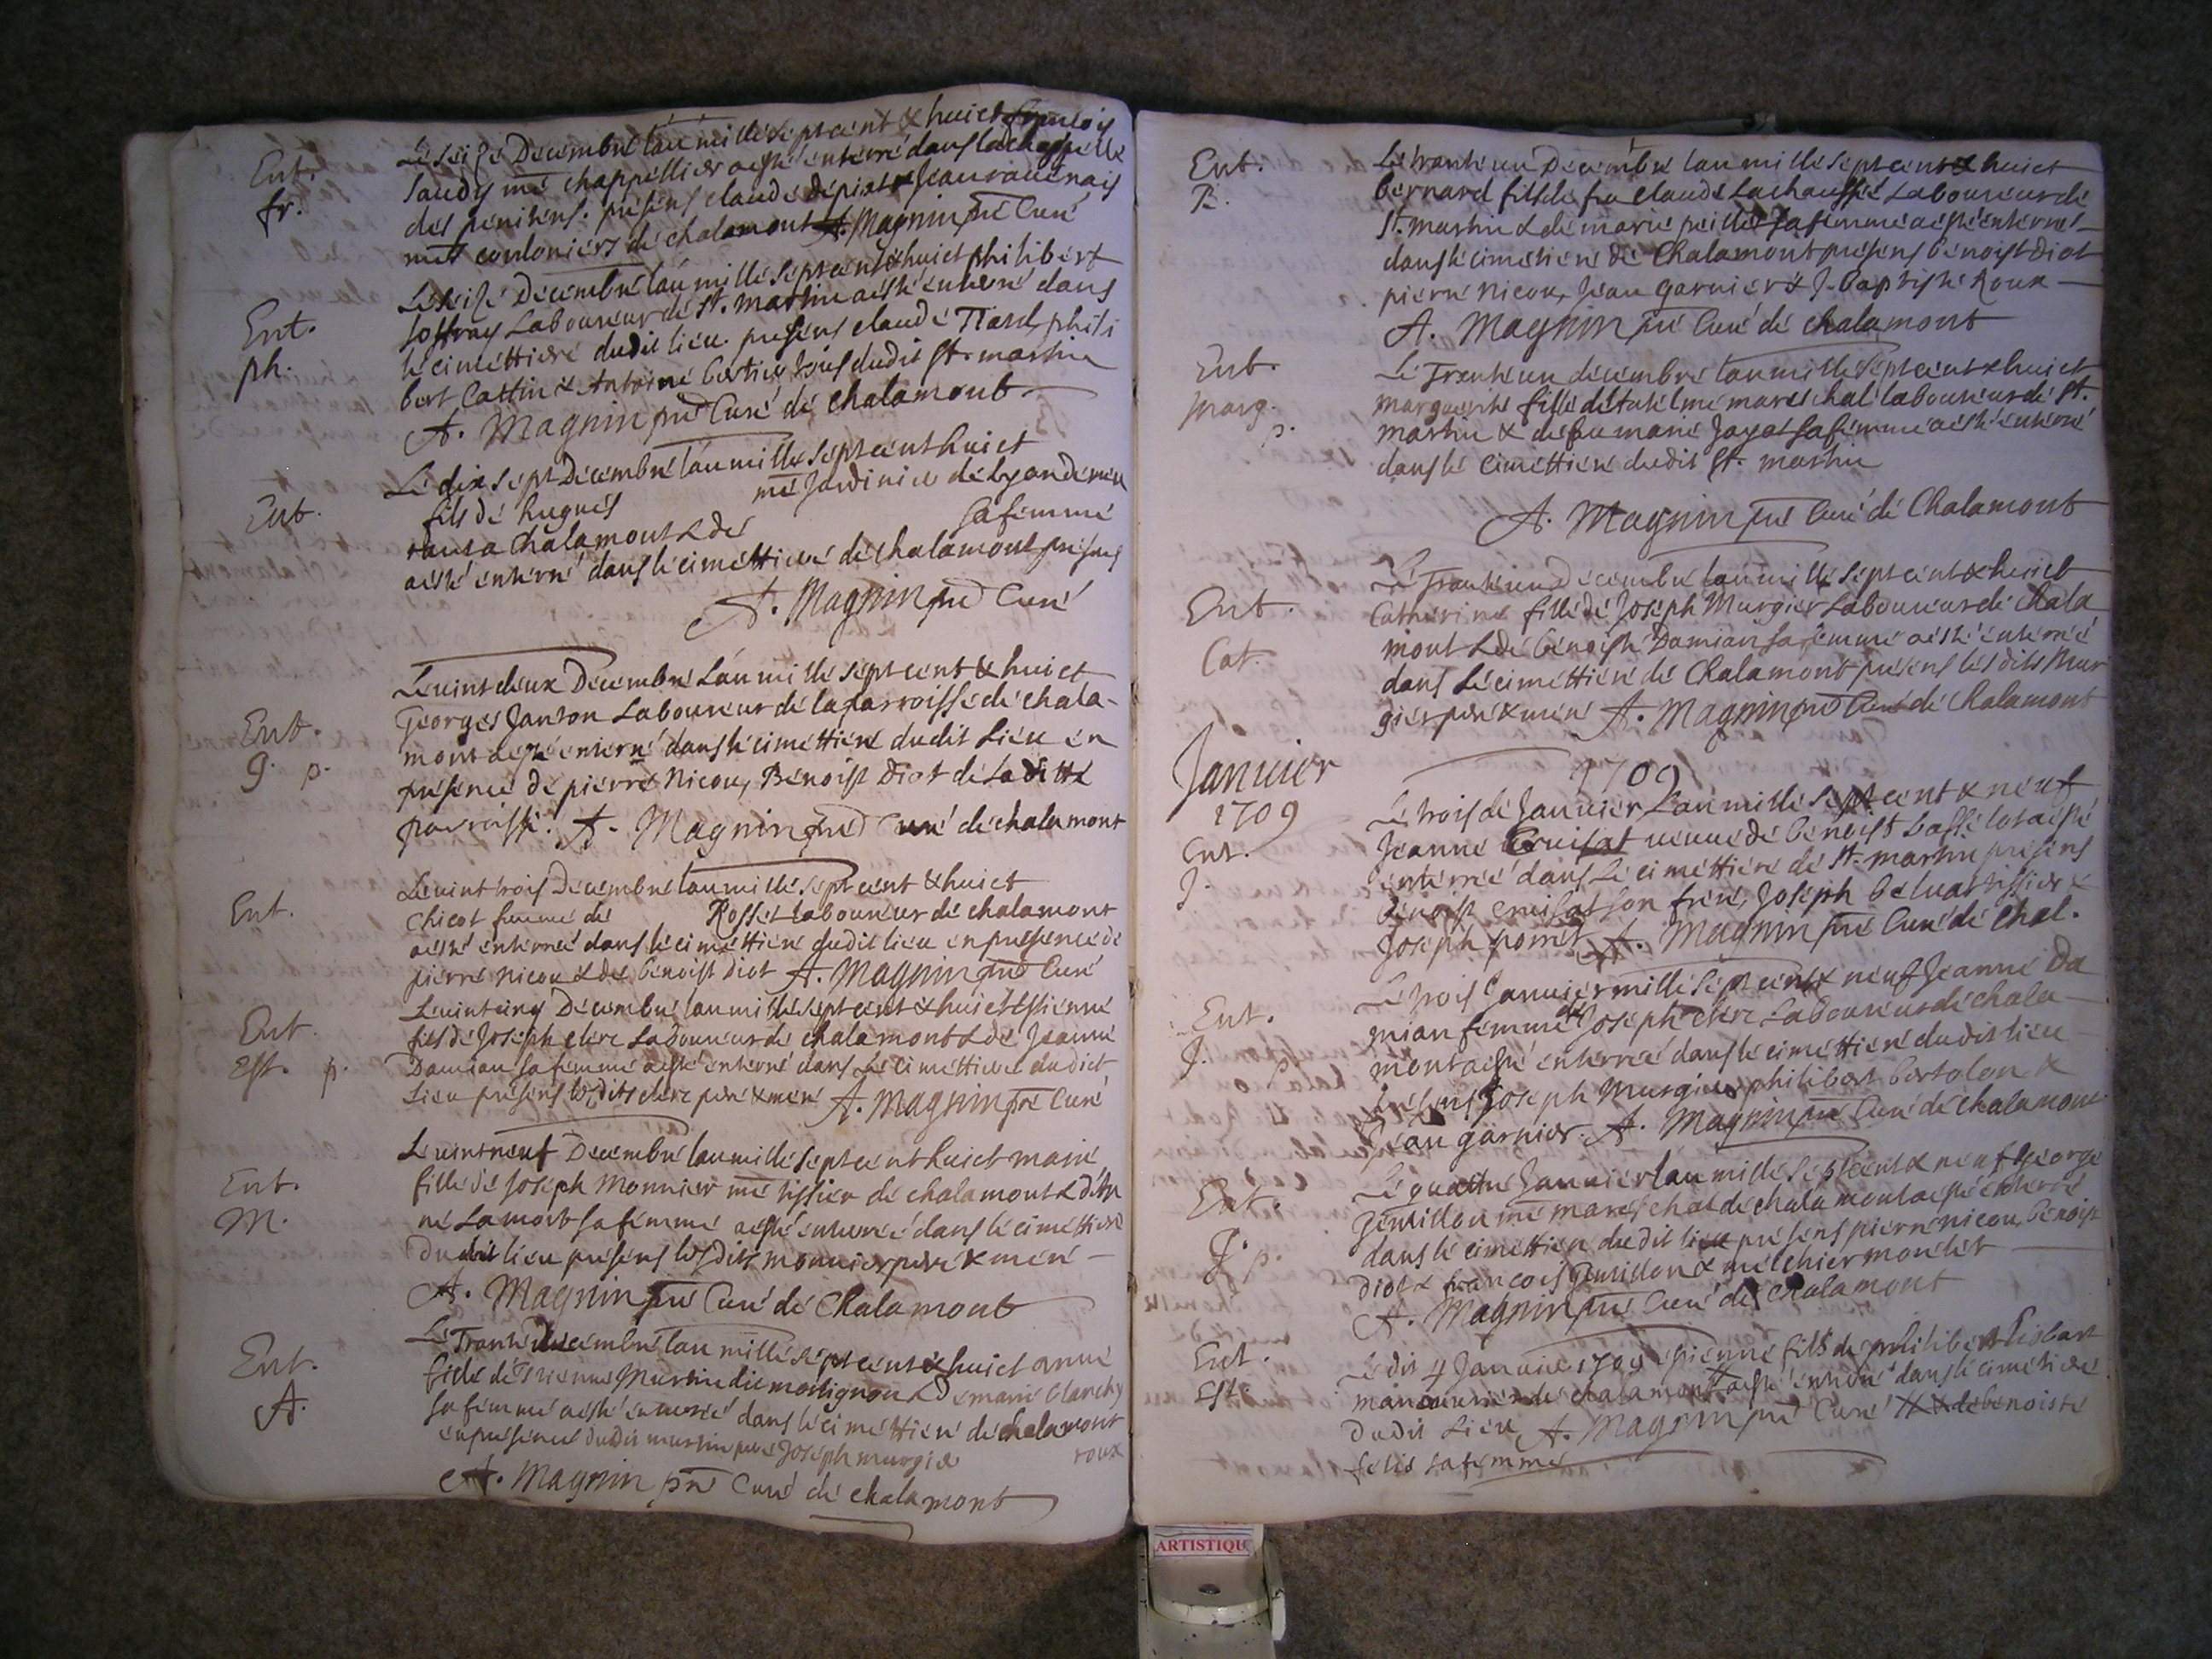 Ent.
fr.
Le seize Decembre l'an mille sept cent & huict françois
Jaudy me chappellier a esté enterré dans la chappelle
des penitens. présens claude depiat & Jean
mes cordoniers de chalamont A. Magnin pre Curé
Ent.
ph.
Le seize Decembre l'an mille sept cent & huict philibert
Joffray Laboureur de St. martin a esté enterré dans
le cimettiere dudit lieu. presens claude Tiard, phili
bert Cattin & Antoine bertier tous dudit St. martin
A. Magnin pre Curé de chalamont
Ent.
Le dix sept Decembre l'an mille sept cent huict
fils de hugues me Jardinier de Lyon demeu
rant a Chalamont & de sa femme
a esté enterré dans le cimettiere de chalamont presens
A. Magnin pre Curé
Ent.
g. p.
Le vint deux Decembre L'an mille sept cent & huict
Georges Janton Laboureur de la parroisse de chala-
mont a esté enterré dans le cimettiere dudit Lieu en
présence de pierre Nicou, Benoist Diot de La ditte
parroisse. A. Magnin pre Curé de chalamont
Ent.
Le vint trois Decembre l'an mille sept cent & huict
chicot femme de Rosset Laboureur de chalamont
a esté enterrée dans le cimettiere dudit lieu en presence de
pierre Nicou & de benoist diot A. Magnin pre Curé
Ent.
Est. p.
Le vint cinq Decembre l'an mille sept cent & huict estienne
fils de Joseph clerc Laboureur de chalamont & de Jeanne
Damian sa femme a esté enterré dans Le cimettiere dudict
Lieu présens lesdits clerc pere & mere A. Magnin pre Curé
Ent.
M.
Le vint neuf Decembre l'an mille sept cent huict marie
fille de Joseph Monnier me tissier de chalamont & d'etien
ne Lamort sa femme a esté enterrée dans le cimettiere
dudit lieu présens lesdits monnier pere & mere
A. Magnin pre Curé de Chalamont
Ent.
A.
Le Trante Decembre l'an mille sept cent & huict anne
fille de Etienne Murtin dit & de marie blanchy
sa femme a esté enterrée dans le cimettiere de chalamont
en presence dudit murtin pere Joseph murgier roux
A. Magnin pre Curé de chalamont
Ent.
B.
Le trante un Decembre l'an mille sept cent & huict
bernard fils de feu claude Lachaussée Laboureur de
St. martin & de marie peillet sa femme a esté enterré
dans le cimetiere de Chalamont presens benoist Diot
pierre Nicou, Jean garnier & J. baptiste Roux
A. Magnin pre Curé de chalamont
Ent.
Marg.
p.
Le Trante un decembre l'an mille sept cent & huict
marguerite fille de me mareschal laboureur de St.
martin & de feu marie Jayat sa femme a esté enterré
dans le cimettiere dudit St. martin
A. Magnin pre Curé de Chalamont
Ent.
Cat.
Le Trante un Decembre l'an mille sept cent & huict
Catherine fille de Joseph Murgier Laboureur de chala
mont & de benoiste Damian sa femme a esté enterré
dans Le cimettiere de Chalamont presens lesdits Mur
gier pere & mere A. Magnin pre Curé de Chalamont
Janvier
1709
1709
Ent.
J.
Le trois de Janvier L'an mille sept cent & neuf
Jeanne Cruisat veuve de benoist a esté
enterrée dans Le cimettiere de St. martin présens
benoist cruisat son frere, Joseph beluat tissier &
Joseph porret A. Magnin pre Curé de Chal.
Ent.
J. p.
Le trois Janvier mille sept cent & neuf Jeanne Da
mian femme de Joseph clerc Laboureur de chala-
mont a esté enterrée dans le cimettiere dudit lieu
présens Joseph Murgier philibert bertolon &
Jean garnier. A. Magnin pre Curé de chalamont
Ent.
J. p.
Le quattre Janvier l'an mille sept cent & neuf George
Jenillon me mareschal de chalamont a esté enterré
dans le cimettiere dudit lieu présens pierre nicou, benoist
diot & françois Jenillon & melchior morelet
A. Magnin pre Curé de chalamont
Ent.
Est.
Ledit 4 Janvier 1709 estienne fils de philibert
manouvrier de chalamont a esté enterré dans le cimetiere
dudit Lieu A. Magnin pre Curé # & de benoiste
felis sa femme
ARTISTIQU